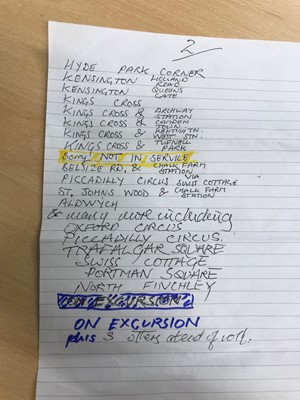 2
HYDE PARK CORNER
KENSINGTON HOLLAND ROAD
KENSINGTON QUEENS GATE
KINGS CROSS
KINGS CROSS & ARCHWAY STATION
KINGS CROSS & CAMDEN TOWN
KINGS CROSS & KENTISH TN. WEST STN.
KINGS CROSS & TUFNELL PARK
Sorry NOT IN SERVICE
BELSIZE RD. & CHALK FARM STATION
PICCADILLY CIRCUS VIA SWISS COTTAGE
ST. JOHNS WOOD & CHALK FARM STATION
ALDWYCH
& many more including
OXFORD CIRCUS
PICCADILLY CIRCUS.
TRAFALGAR SQUARE
SWISS COTTAGE
PORTMAN SQUARE
NORTH FINCHLEY
ON EXCURSION
ON EXCURSION
plus 3 others at end of roll.